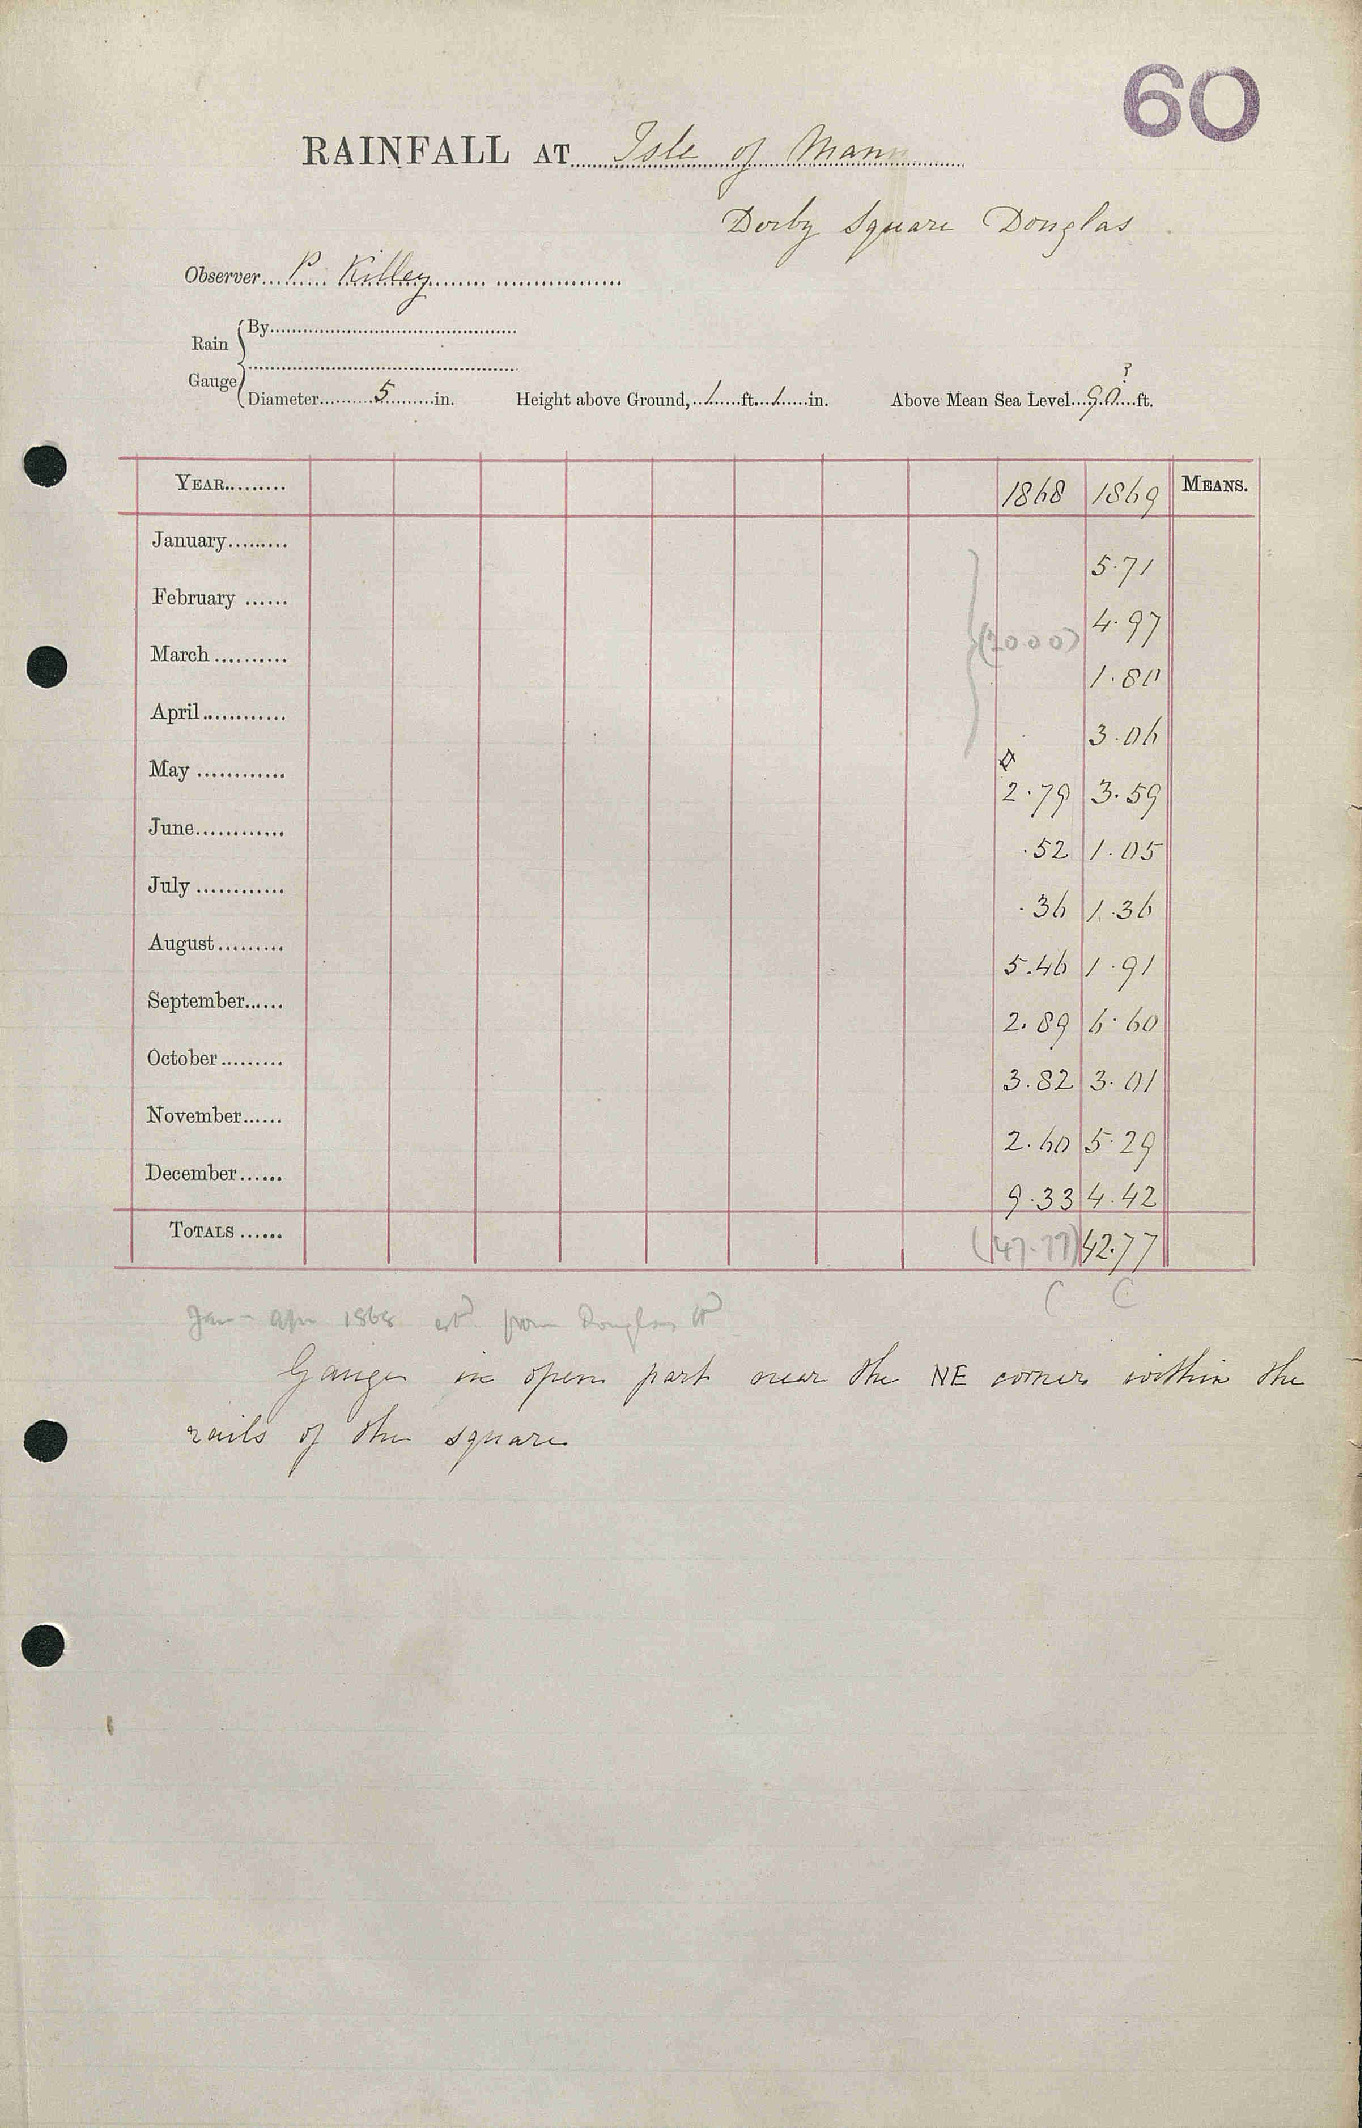 60
RAINFALL AT Isle of Mann
Derby Square Douglas
Observer P Killey
Rain Gauge { By
Diameter 5 in. Height above Ground, 1 ft. 1 in. Above Mean Sea Level 90 ? ft.
YEAR 1868 1869 MEANS.
January 5.71
February 4.97
(2000)
March 1.80
April 3.06
May 2.79 3.59
June .52 1.05
July .36 1.36
August 5.46 1.91
September 2.89 6.60
October 3.82 3.01
November 2.60 5.29
December 9.33 4.42
TOTALS (47.77) 42.77
C C
Jan - Apr 1868 estd from Douglas
Gauge in open part near the NE corner within the
rails of the square